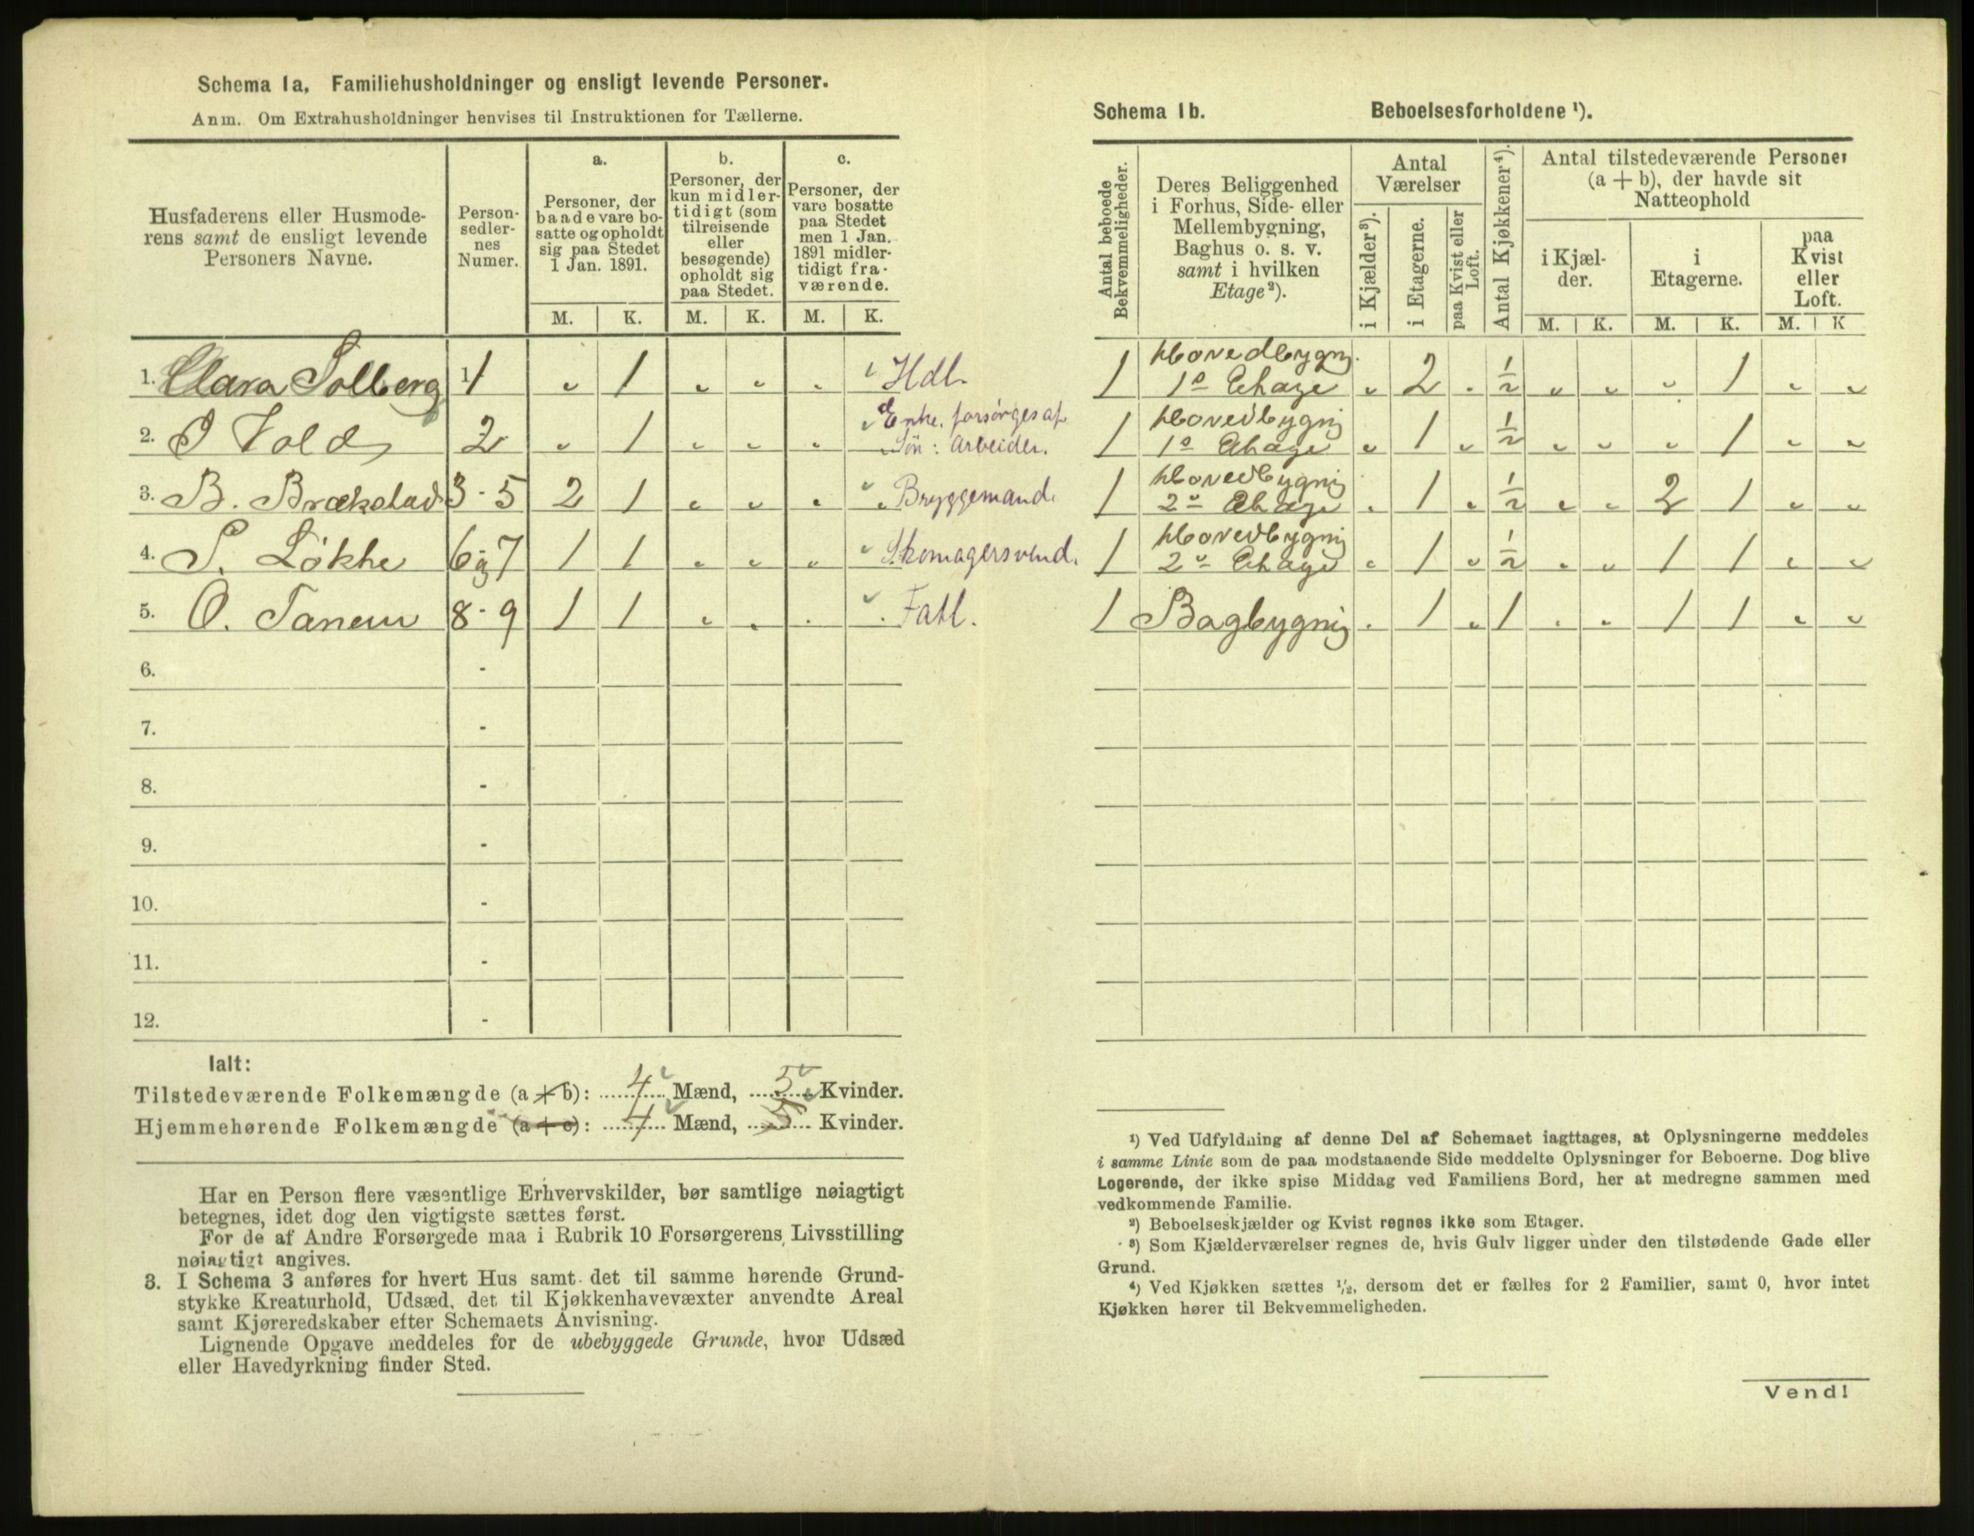 Schema 1a, Familiehusholdninger og ensligt levende Personer.
Anm. Om Extrahusholdninger henvises til Instruktionen for Tællerne.
Husfaderens eller Husmode-
rens samt de ensligt levende
Personers Navne.
Person-
sedler-
nes
Numer.
a.
Personer, der
baade vare bo-
satte og opholdt
sig paa Stedet
1 Jan. 1891.
b.
Personer, der
kun midler-
tidigt (som
tilreisende
eller
besøgende)
opholdt sig
paa Stedet.
c.
Personer, der
vare bosatte
paa Stedet
men 1 Jan.
1891 midler-
tidigt fra-
værende.
M. K. M. K. M. K.
1. Clara Solberg 1 „ 1 „ „ „ Hdl.
2. J Vold 2 „ 1 „ „ „ „ Enke, forsørges af
Søn: Arbeider.
3. B. Brækstad 3-5 2 1 „ „ „ „ Bryggemand.
4. P. Løkke 6 og 7 1 1 „ „ „ Skomagersvend.
5. O. Tanem 8-9 1 1 „ . . . Fatl.
6. -
7. -
8. -
9. -
10. -
11. -
12. -
Ialt:
Tilstedeværende Folkemængde (a + b): 4 Mænd, 5 Kvinder.
Hjemmehørende Folkemængde (a + c): 4 Mænd, 5 Kvinder.
Har en Person flere væsentlige Erhvervskilder, bør samtlige nøiagtigt
betegnes, idet dog den vigtigste sættes først.
For de af Andre Forsørgede maa i Rubrik 10 Forsørgerens Livsstilling
nøiagtigt angives.
3. I Schema 3 anføres for hvert Hus samt det til samme hørende Grund-
stykke Kreaturhold, Udsæd, det til Kjøkkenhavevæxter anvendte Areal
samt Kjøreredskaber efter Schemaets Anvisning.
Lignende Opgave meddeles for de ubebyggede Grunde, hvor Udsæd
eller Havedyrkning finder Sted.
Schema 1b. Beboelsesforholdene ¹).
Antal beboede
Bekvemmeligheder.
Deres Beliggenhed
i Forhus, Side- eller
Mellembygning,
Baghus o. s. v.
samt i hvilken
Etage²).
Antal
Værelser
i Kjælder³).
i Etagerne.
paa Kvist eller
Loft.
Antal Kjøkkener⁴).
Antal tilstedeværende Personer
(a + b), der havde sit
Natteophold
i Kjæl-
der.
i
Etagerne.
paa
Kvist
eller
Loft.
M. K. M. K. M. K
1 Hovedbygnig.
1ᵒ Ethage „ 2 . ½ „ „ „ 1 „ „
1 Hovedbygnig
1ᵒ Ethage „ 1 „ ½ „ „ „ 1 „ „
1 Hovedbygnig
2ᵒ Ethage . 1 „ ½ „ „ 2 1 „ „
1 Hovedbygnig
2ᵒ Ethage . 1 „ ½ „ „ 1 1 „ „
1 Bagbygnig . 1 „ 1 „ „ 1 1 „ „
¹) Ved Udfyldning af denne Del af Schemaet iagttages, at Oplysningerne meddeles
i samme Linie som de paa modstaaende Side meddelte Oplysninger for Beboerne. Dog blive
Logerende, der ikke spise Middag ved Familiens Bord, her at medregne sammen med
vedkommende Familie.
²) Beboelseskjælder og Kvist regnes ikke som Etager.
³) Som Kjælderværelser regnes de, hvis Gulv ligger under den tilstødende Gade eller
Grund.
⁴) Ved Kjøkken sættes ½, dersom det er fælles for 2 Familier, samt 0, hvor intet
Kjøkken hører til Bekvemmeligheden.
Vend!